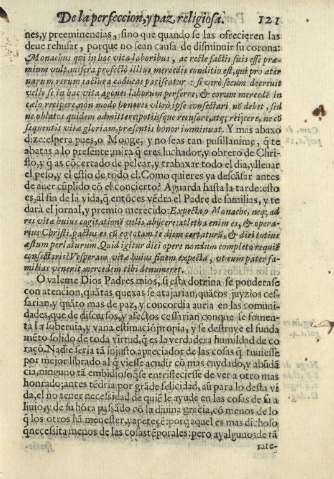 De la perfeccion, y paz religiosa. 121
nes, y preeminencias, sino que quando se las ofrecieren las
deue rehusar, porque no sean causa de disminuir su corona:
Monachus qui in hac vita laboribus, ac rectè factis suis esse præ
mium vult, misera profectò illius mercedis conditio est, qui pro æter
narum rerum iactura caducas
velis se in hac vita agenti laborem perferre, & eorum mercede in
cælo recipere, non modo honores vltrò ipse consectari nō debet, sed
ne oblatos quidem admittere; potiùsque recusare, atq; reijcere, ne cō
sequentis vita gloriam præsentis honor imminuat. Y mas abaxo
dize: espera pues, ò Monge, y no seas tan pusillanime, q̃ te
abatas a lo presente; mira q̃ eres luchador, y obrero de Chri-
sto, y q̃ as cõcertado de pelear, y trabaxar todo el dia, y lleuar
el peso, y el estio de todo el. Como quieres ya descãsar antes
de auer cũplido cõ el concierto? Aguarda hasta la tarde: esto
es, al fin de la vida, q̃ entõces vẽdra el Padre de familias, y te
dará el jornal, y premio merecido: Expecta, ò Monache, neq; ad
res vita huius
rius Christi,
æstum perlaturum. Quid igitur dici opere nondum completo requiē
consectaris? Vesperam vitæ huius finem expecta, vt cum pater fa-
milias venerit mercedem tibi dinumeret.
O valeme Dios Padres mios, si esta dotrina se ponderase
con atencion, quãtas quexas se atajarian, quãtos juyzios ces-
sarian, y quãto mas de paz, y concordia auria en las comuni
dades, que de discursos, y afectos cessarian conque se fomen-
ta la soberuia, y vana estimaciõ propia, y se destruye el funda
mẽto solido de toda virtud, q̃ es la verdadera humildad de co
raçõ. Nadie seria tã injusto apreciador de las cosas q̃ tuuiesse
por mejor librado al q̃ viesse acudir cõ mas cuydado, y abũdã
cia, ninguno tã embidioso q̃ se entristeciesse de ver a otro mas
honrado; antes tẽdria por grãde felicidad, aũ para lo desta vi
da, el no tener necessidad de quiẽ le ayude en las cosas de su a
liuio, y de su hõra pasãdo cõ la diuina gracia, cõ menos de lo
q̃ los otros hã menester, y apetecẽ: porq̃ aquel es mas dichoso
q̃ necessita menos de las cosas tẽporales: pero ay alguno de tã